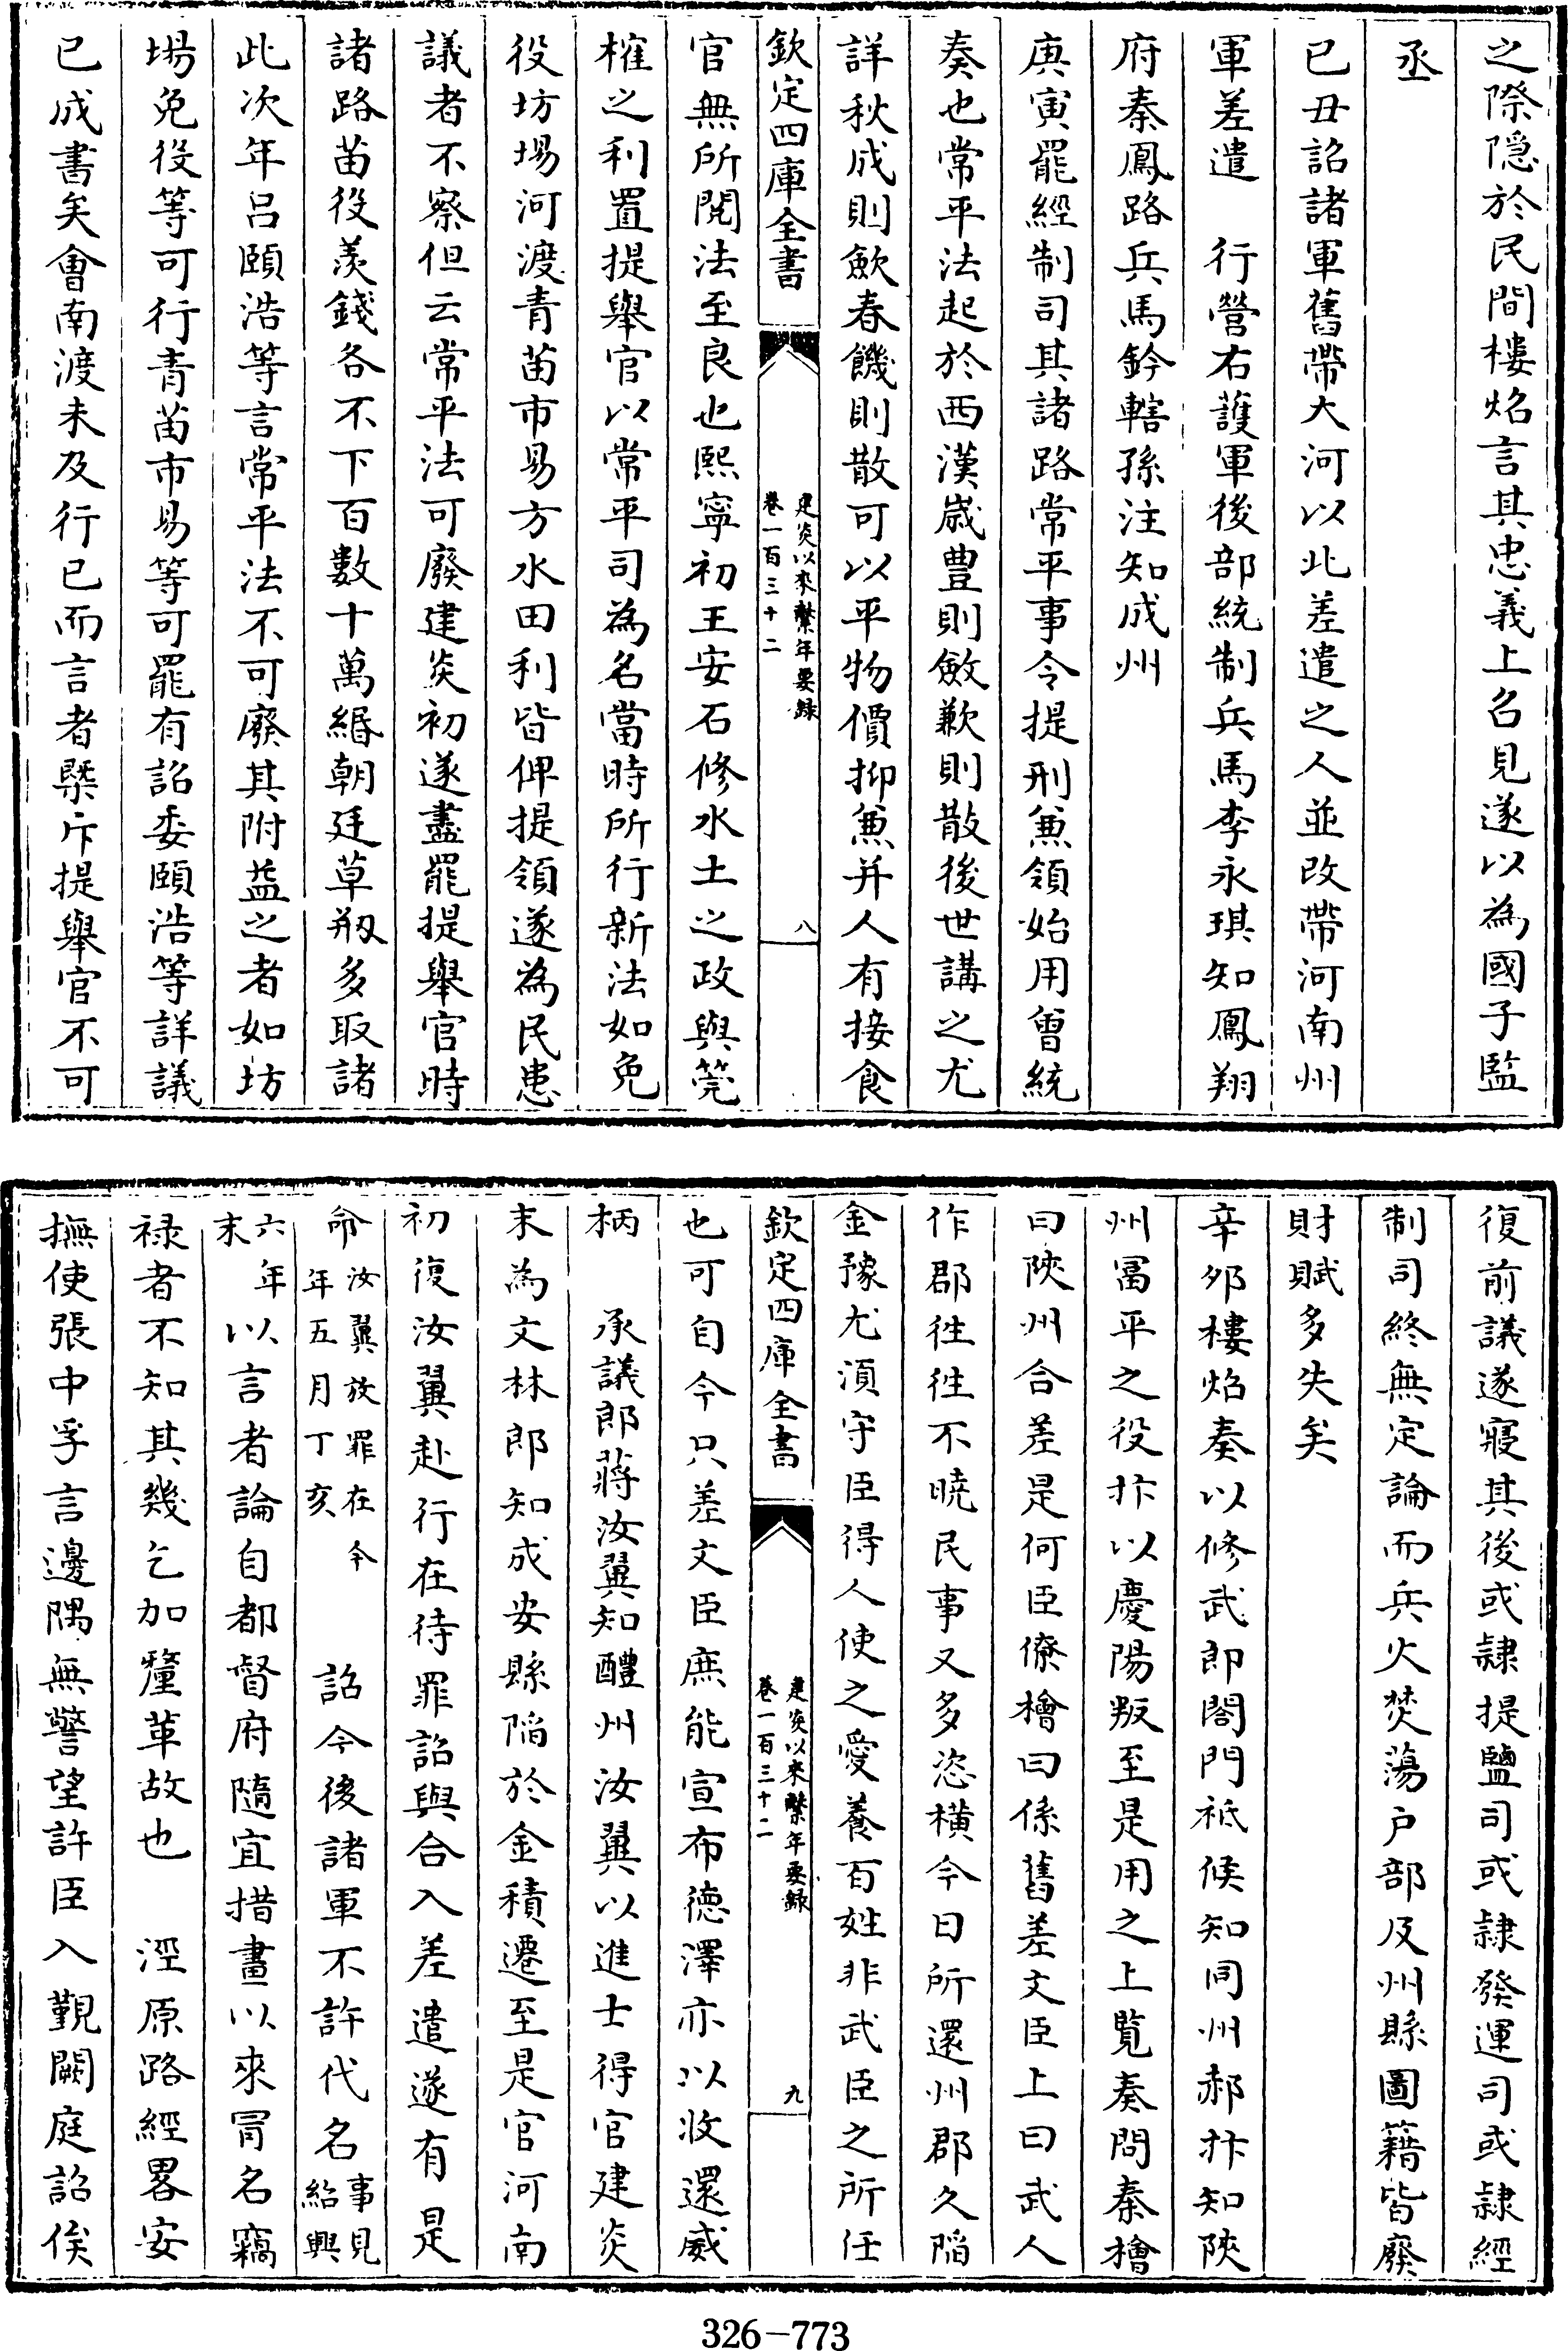 之際隐於民間樓炤言其忠義上召見遂以為國子監
丞
已丑詔諸軍舊帶大河以北差遣之人並改帶河南州
軍差遣　行營右護軍後部統制兵馬李永琪知鳳翔
府秦鳳路兵馬鈐轄孫注知成州
庚寅罷經制司其諸路常平事令提刑兼領始用曾統
奏也常平法起於西漢歳豊則斂歉則散後世講之尤
詳秋成則歛春饑則散可以平物價抑兼并人有接食
欽定四庫全書
建炎以來繫年要録
卷一百三十二
八
官無所閱法至良也熙寧初王安石修水土之政與筦
榷之利置提舉官以常平司為名當時所行新法如免
役坊場河渡青苗市易方水田利皆俾提領遂為民患
議者不察但云常平法可廢建炎初遂盡罷提舉官時
諸路苗役羨錢各不下百數十萬緡朝廷草剏多取諸
此次年吕頤浩等言常平法不可廢其附益之者如坊
場免役等可行青苗市易等可罷有詔委頤浩等詳議
已成書矣會南渡未及行已而言者槩斥提舉官不可
復前議遂寢其後或隷提鹽司或隷發運司或隷經
制司終無定論而兵火焚蕩户部及州縣圖籍皆廢
財賦多失矣
辛夘樓炤奏以修武郎閤門祗候知同州郝抃知陜
州冨平之役抃以慶陽叛至是用之上覧奏問秦檜
曰陜州合差是何臣僚檜曰係舊差文臣上曰武人
作郡徃徃不曉民事又多恣横今日所還州郡久陷
金豫尤湏守臣得人使之愛養百姓非武臣之所任
欽定四庫全書
建炎以來繫年要録
卷一百三十二
九
也可自今只差文臣庶能宣布徳澤亦以收還威
柄　承議郎蔣汝翼知醴州汝翼以進士得官建炎
末為文林郎知成安縣陷於金積遷至是官河南
初復汝翼赴行在待罪詔與合入差遣遂有是
命汝翼放罪在今年五月丁亥　詔今後諸軍不許代名事見紹興
六年末以言者論自都督府隨宜措畫以來冐名竊
禄者不知其幾乞加釐革故也　涇原路經畧安
撫使張中孚言邊隅無警望許臣入覲闕庭詔俟
326-773